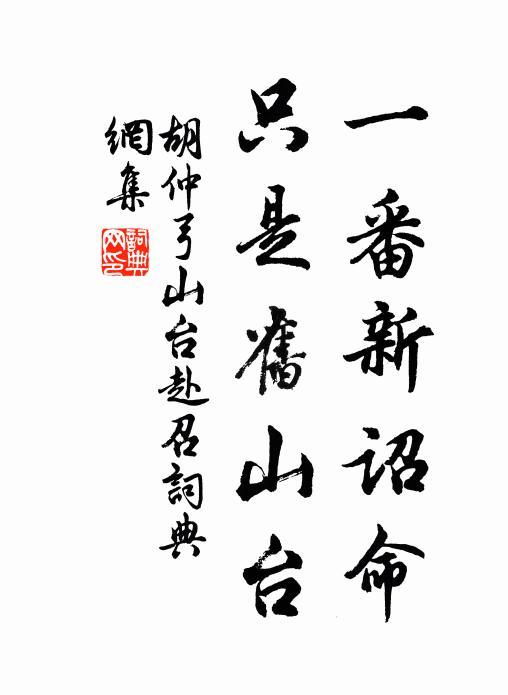 一番新詔命
只是舊山台
胡仲弓山台赴召詞典
網集
詞典
网印